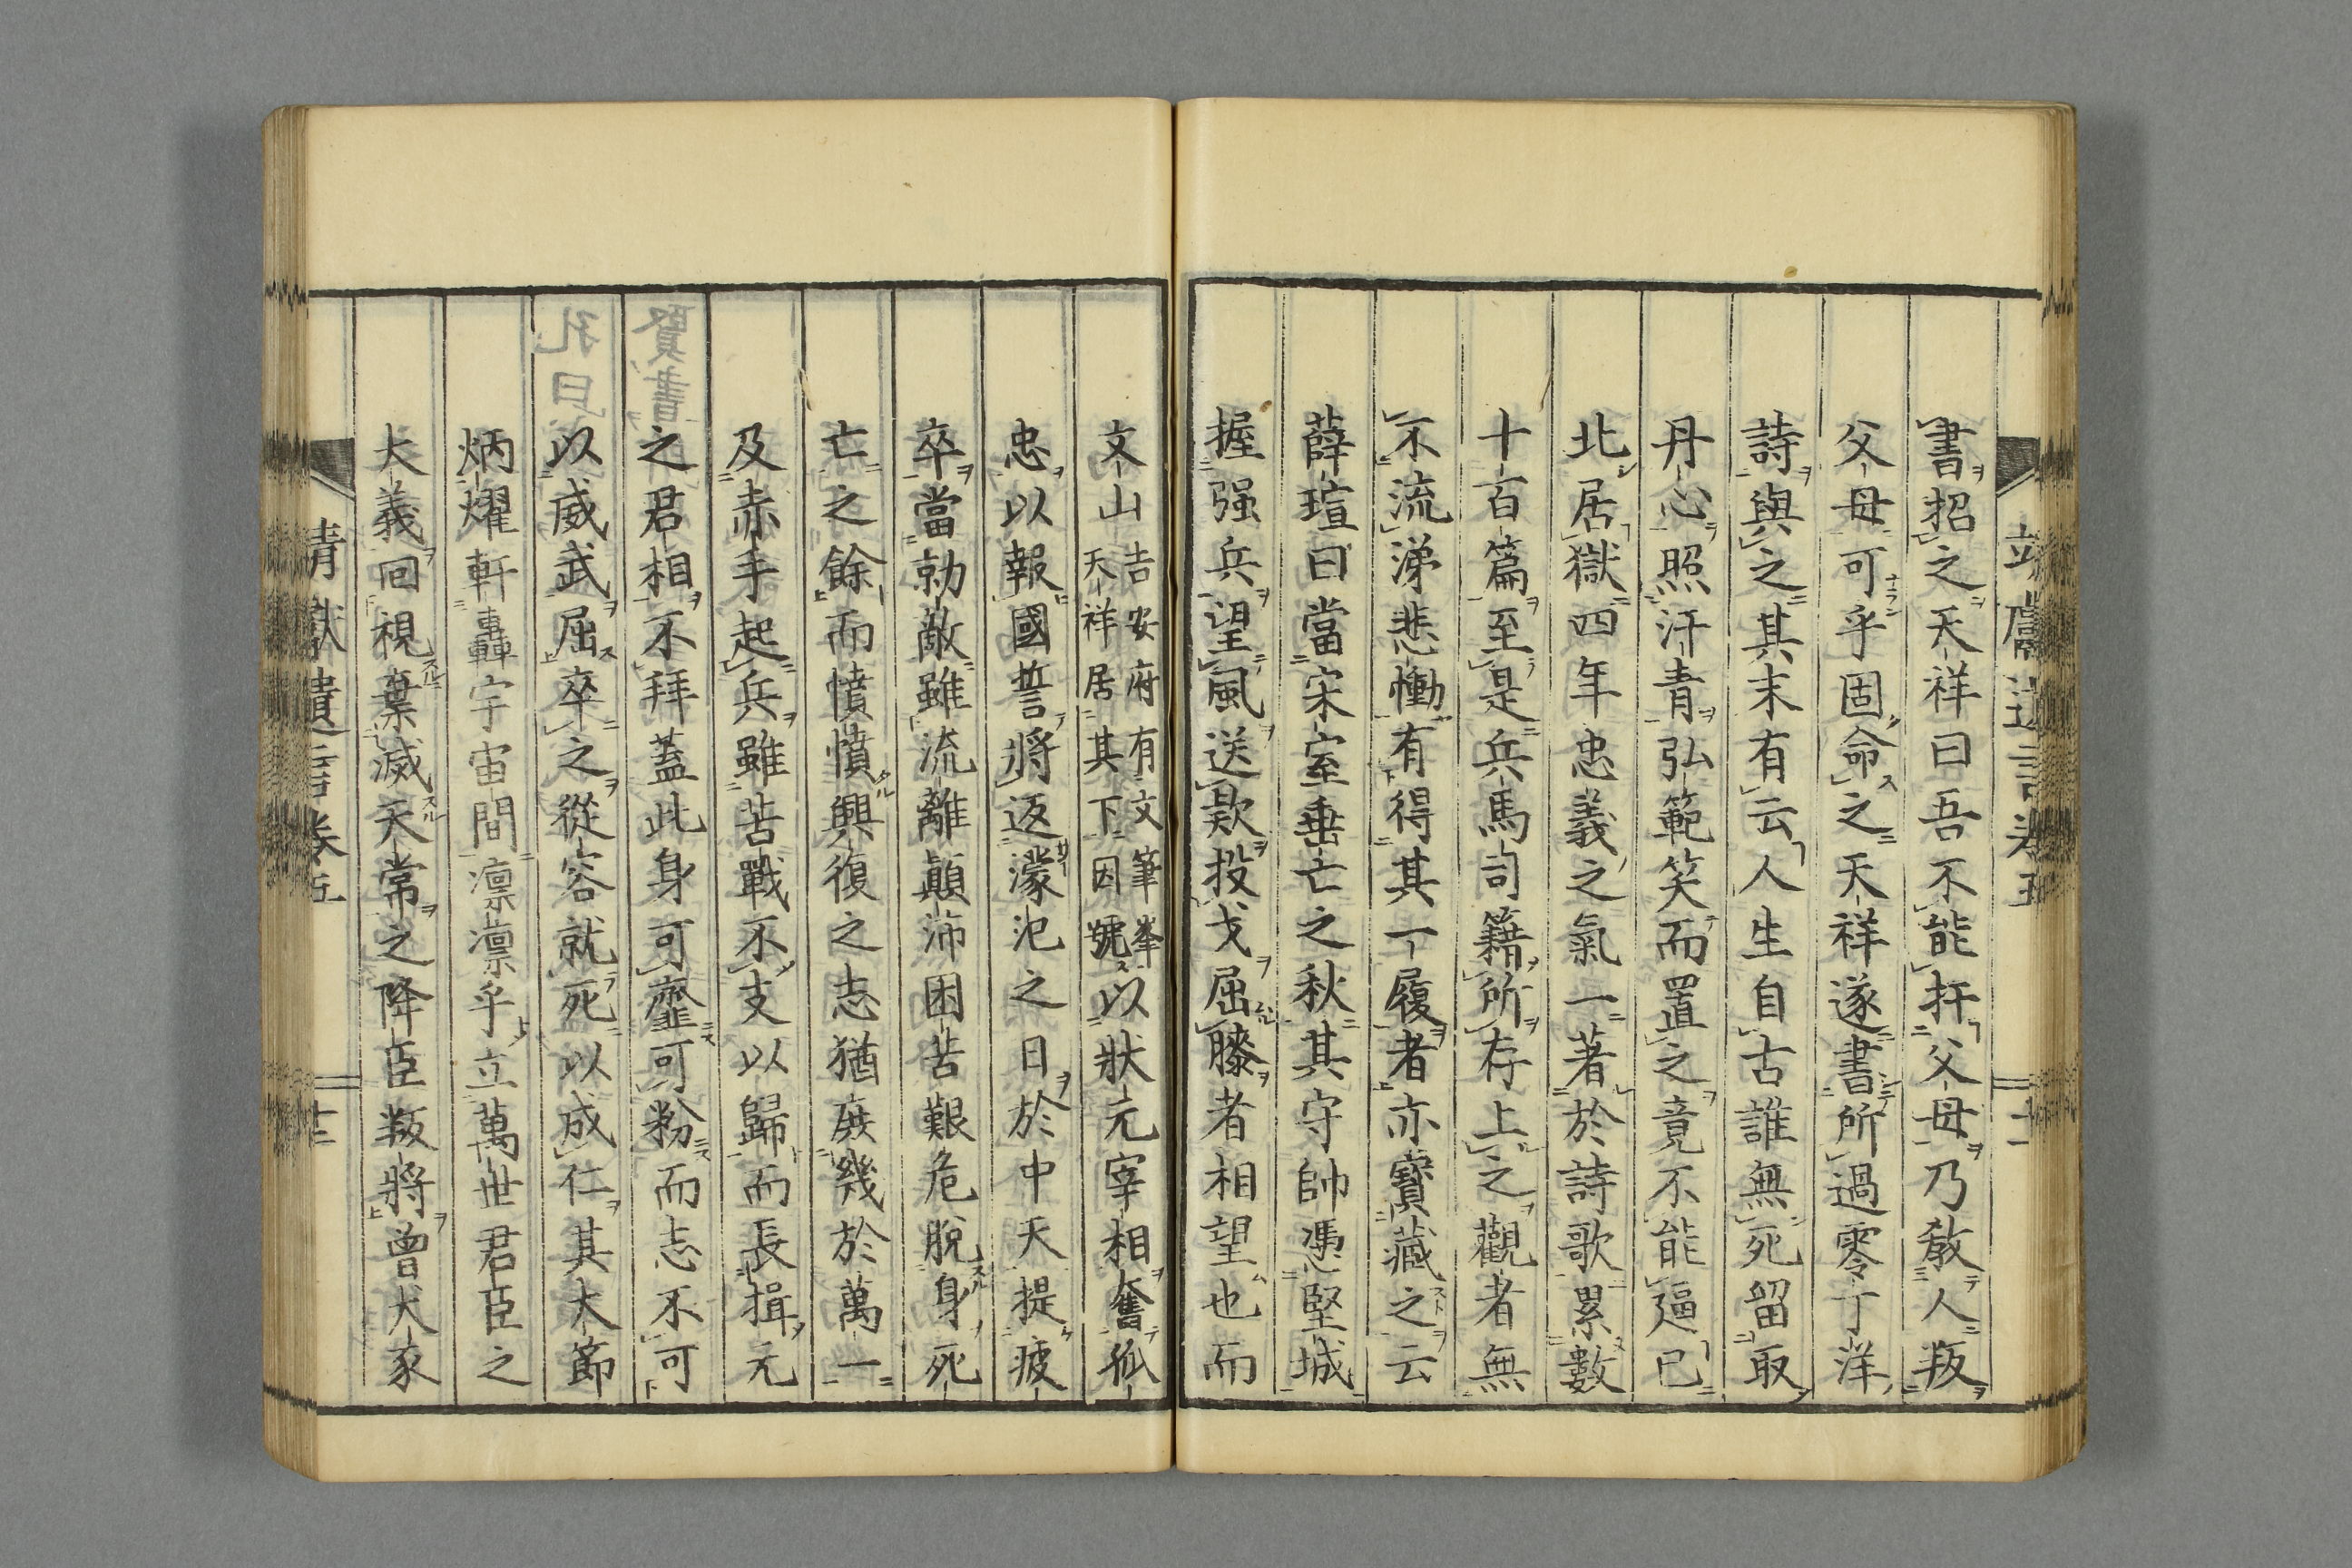 書招之天祥曰吾不能扞父母乃教人叛
父母可乎固命之天祥遂書所過零丁洋
詩與之其末有云人生自古誰無死留取
丹心照汗青弘範笑而置之竟不能逼已
北居獄四年忠義之氣一著於詩歌累數
十百篇至是兵馬司籍所存上之觀者無
不流涕悲慟有得其一履者亦寶藏之云
薛瑄曰當宋室垂亡之秋其守帥憑堅城
握强兵望風送款投戈屈膝者相望也而
文山吉安府有文筆峯天祥居其下因號以狀元宰相奮孤
忠以報國誓將返濛汜之日於中天提疲
卒當勍敵雖流離顛沛困苦艱危脫身死
亡之餘而憤憤興復之志猶庶幾於萬一
及赤手起兵雖苦戰不支以歸而長揖元
之君相不拜蓋此身可虀可粉而志不可
以威武屈卒之從容就死以成仁其大節
炳燿軒轟宇宙間凛凛乎立萬世君臣之
大義回視棄滅天常之降臣叛將曾犬豕
靖獻遺言卷五
十二